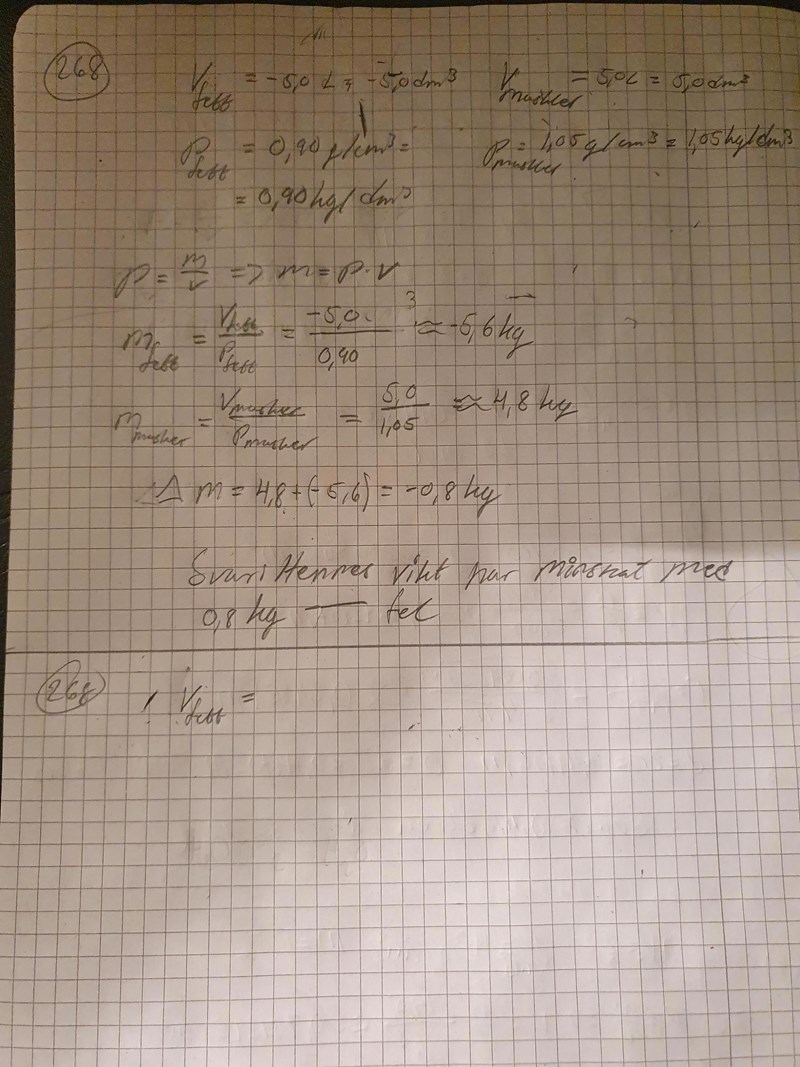 268
V fett = -5,0 L = -5,0 dm³
V muskler = 5,0 L = 5,0 dm³
ρ fett = 0,90 g/cm³ =
ρ muskler = 1,05 g/cm³ = 1,05 kg/dm³
= 0,90 kg/dm³
ρ = m/V => m = ρ·V
m fett = V fett/ρ fett = -5,0/0,90 ≈ -5,6 kg
m muskler = V muskler/ρ muskler = 5,0/1,05 ≈ 4,8 kg
Δ m = 4,8 + (-5,6) = -0,8 kg
Svar: Hennes vikt har minskat med
0,8 kg — fel
268
V fett =